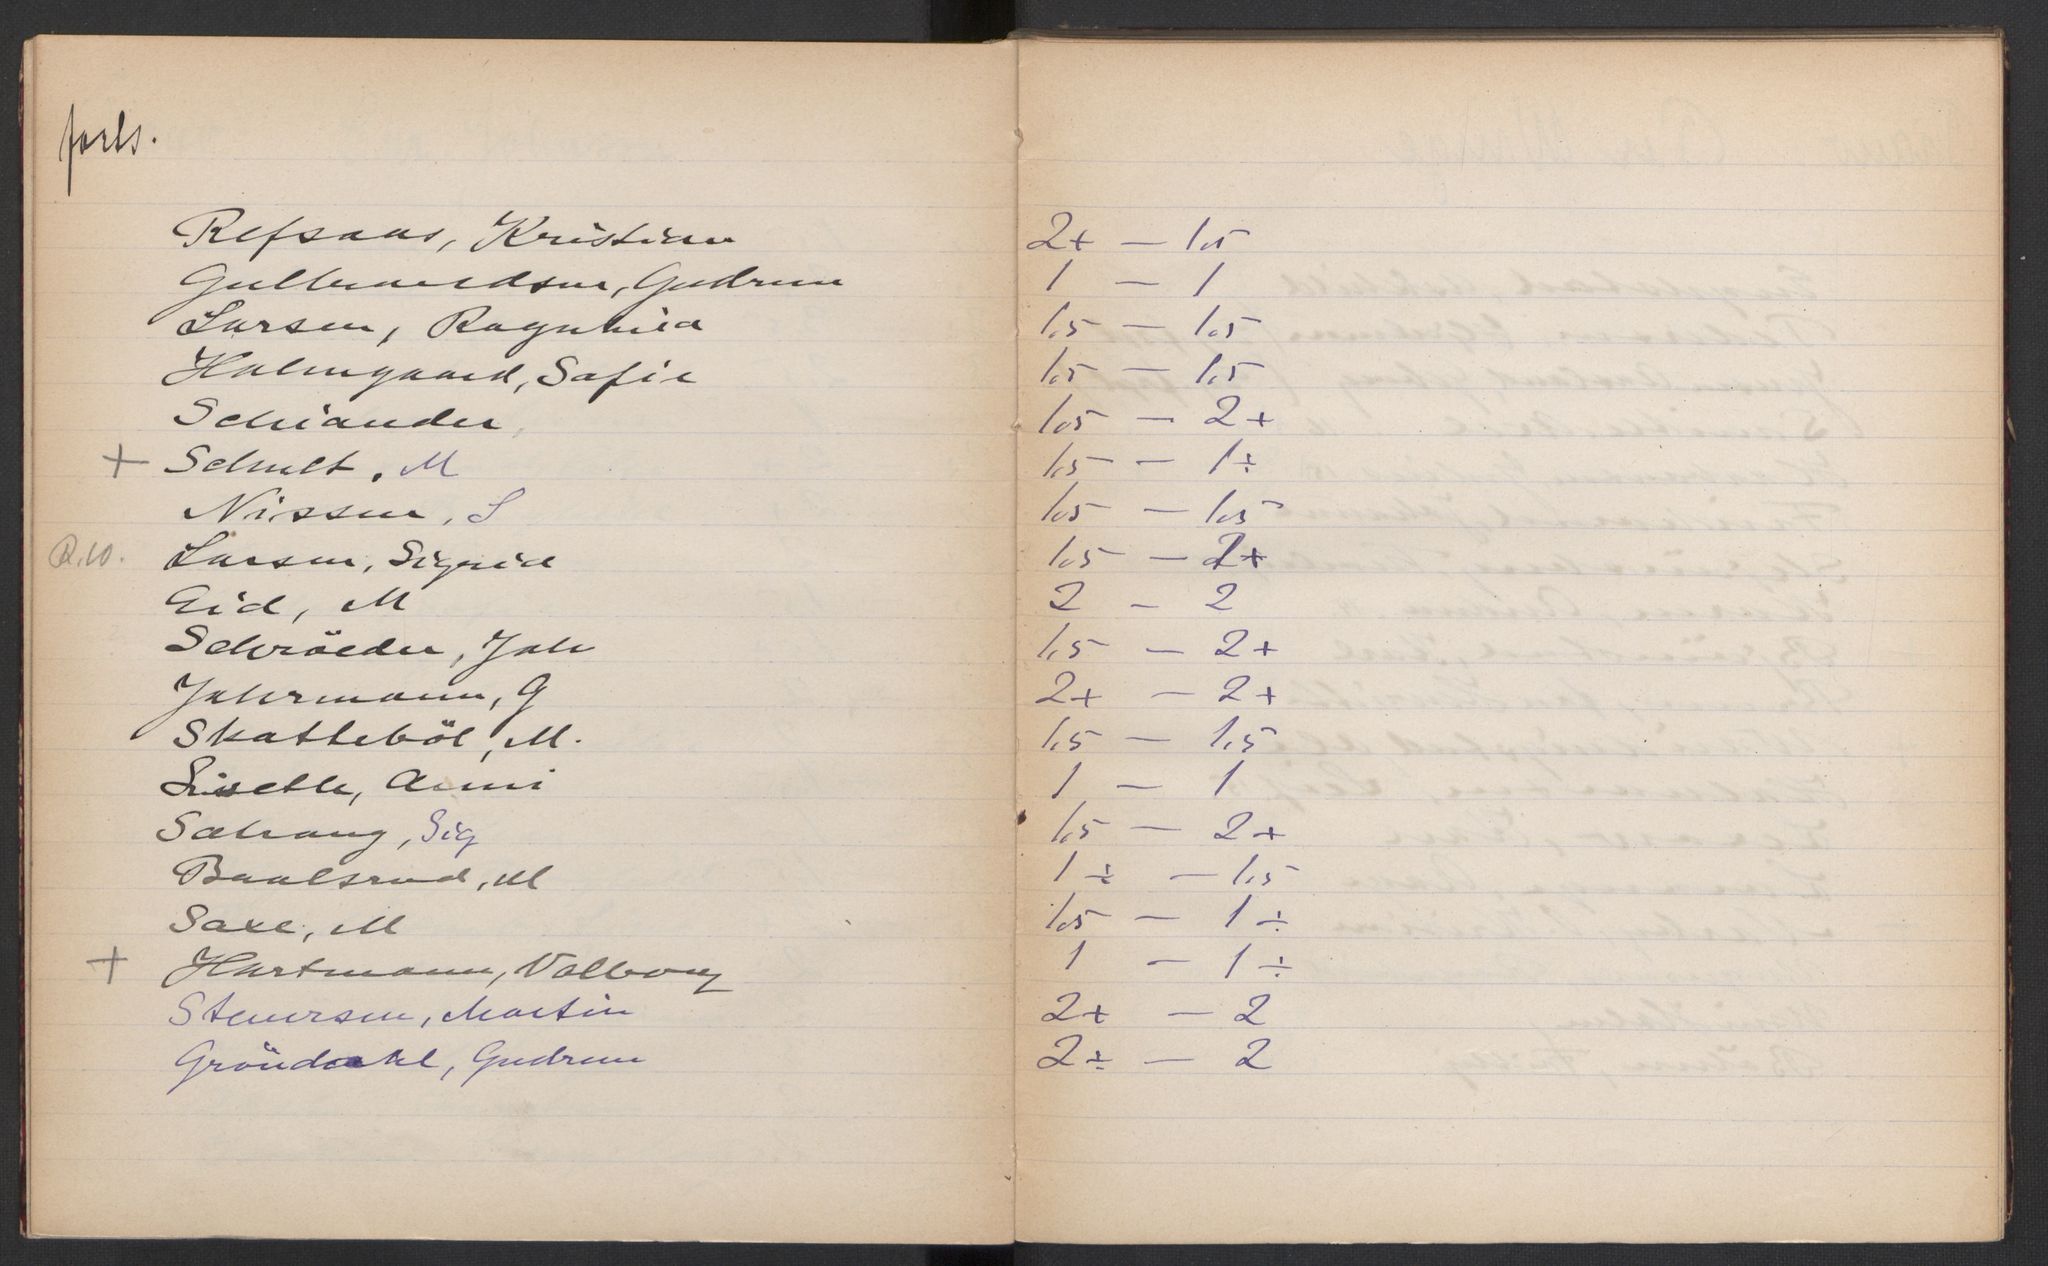 forts.
Refsaas, Kristian 2+ — 1.5
Gulbrandsen, Gudrun 1 — 1
Larsen, Ragnhild 1.5 — 1.5
Holmgaard, Sofie 1.5 — 1.5
Schiander, 1.5 — 2+
+ Schult, M 1.5 — 1÷
Nissen, S 1.5 — 1.5
R.W. Larsen, Sigrid 1.5 — 2+
Eid, M 2 — 2
Schröeder, Joh 1.5 — 2+
Jahrmann, G 2+ — 2+
Skatteböl, M. 1.5 — 1.5
Liseth, Anni 1 — 1
Solvang, Sig 1.5 — 2+
Baalsrud, M 1÷ — 1.5
Saxe, M 1.5 — 1÷
+ Hartmann, Valborg 1 — 1÷
Stenersen, Martin 2+ — 2
Gröndahl, Gudrun 2÷ — 2